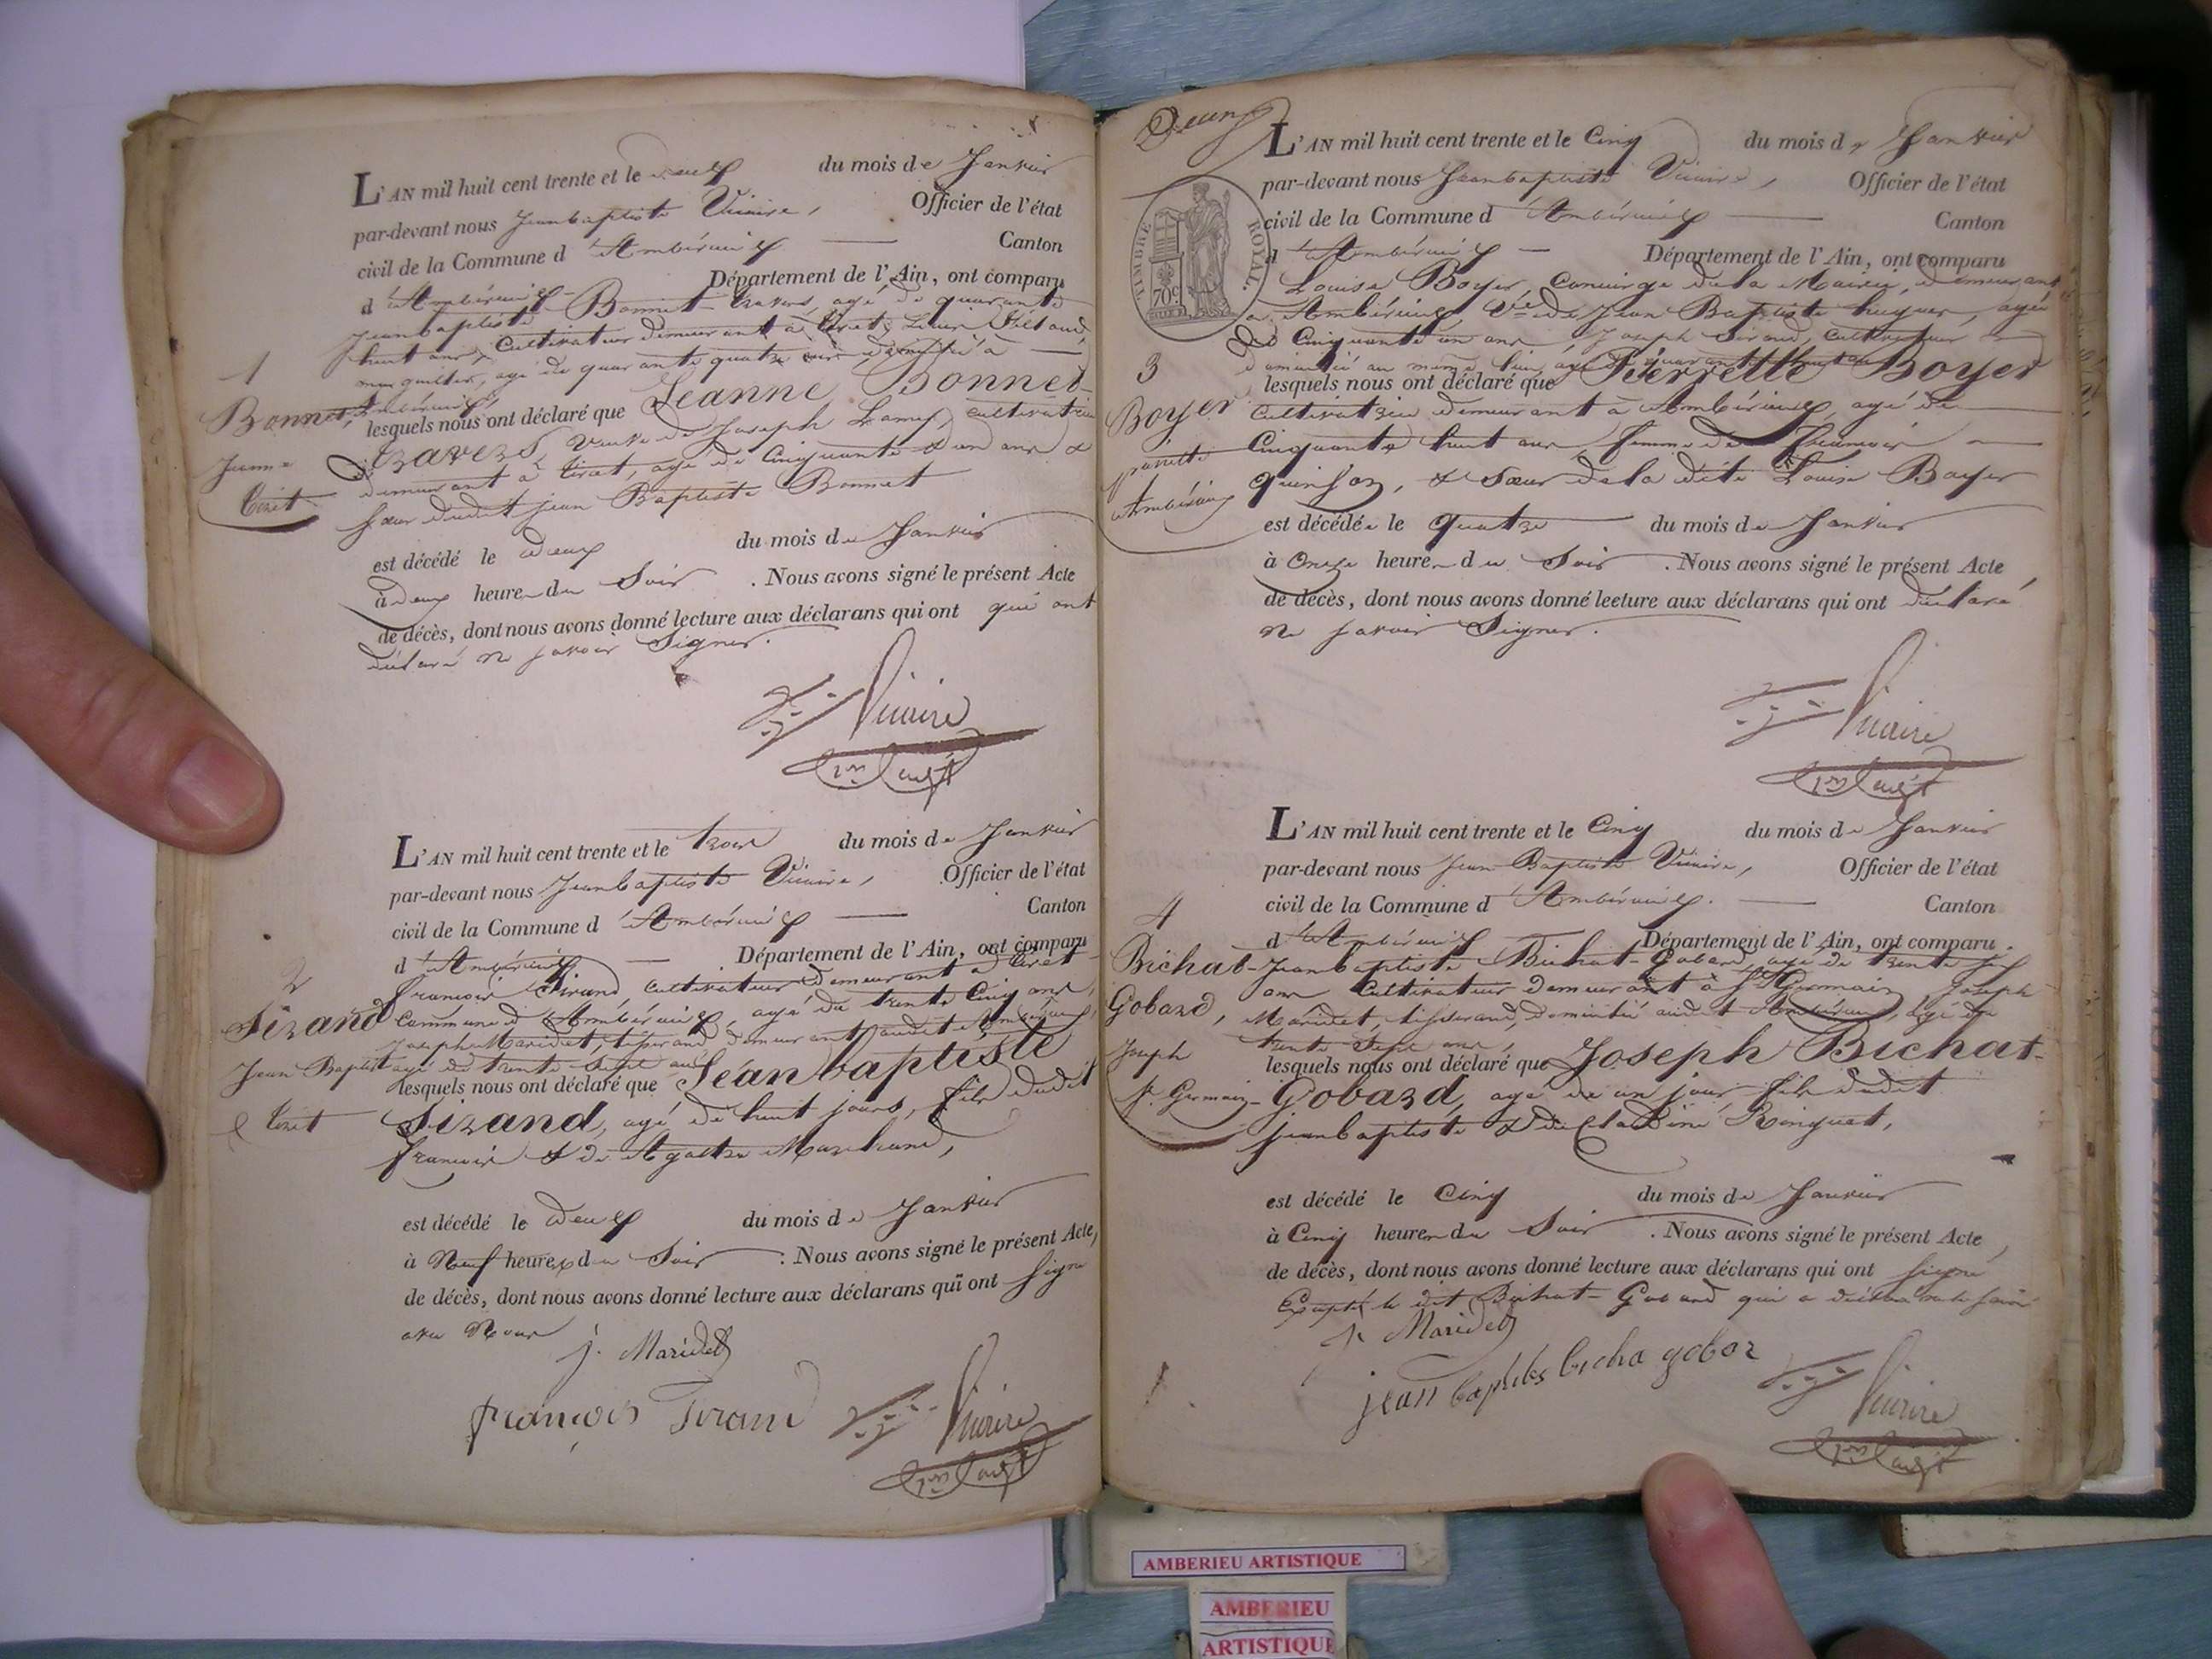 L'AN mil huit cent trente et le deux du mois de Janvier
par-devant nous Jeanbaptiste Vicaire, Officier de l'état
civil de la Commune d'Ambérieux — Canton
d'Ambérieux — Département de l'Ain, ont comparu
Jeanbaptiste Bonnet-travers, agé de quarante
huit ans, Cultivateur demeurant à tiret,
agé de quarante quatre ans, domicilié à —
Ambérieux,
lesquels nous ont déclaré que Jeanne Bonnet-
travers, veuve de Joseph Lamy, cultivatrice
demeurant à tiret, agé de Cinquante & un ans &
Sœur dudit jean Baptiste Bonnet
est décédé le deux du mois de Janvier
à deux heure du Soir . Nous avons signé le présent Acte
de décès, dont nous avons donné lecture aux déclarans qui ont qui ont
déclaré ne savoir Signer.
Vicaire
1
Bonnet,
Jeanne
tiret
L'AN mil huit cent trente et le trois du mois de Janvier
par-devant nous Jeanbaptiste Vicaire, Officier de l'état
civil de la Commune d'Ambérieux — Canton
d'Ambérieux — Département de l'Ain, ont comparu
francois Tirand cultivateur demeurant à tiret
Commune d'Ambérieux, agé de trente Cinq ans,
Joseph Maridet, tisserand demeurant audit Ambérieux,
agé de trente Sept ans
lesquels nous ont déclaré que Jéanbaptiste
Tirand, agé de huit jours, fils dudit
francois & de Agathe Marchand,
est décédé le deux du mois de Janvier
à Neuf heure du Soir . Nous avons signé le présent Acte,
de décès, dont nous avons donné lecture aux déclarans qui ont Signé
avec Nous
j. Maridet
françois Tirand
Vicaire
2
Tirand
Jean Baptiste
tiret
Deux
TIMBRE ROYAL.
70c
L'AN mil huit cent trente et le Cinq du mois de Janvier
par-devant nous Jeanbaptiste Vicaire, Officier de l'état
civil de la Commune d'Ambérieux — Canton
d'Ambérieux — Département de l'Ain, ont comparu
Louise Boyer, Concierge de la Mairie, demeurant
à Ambérieux, Ve de Jean Baptiste huguet, agée
de Cinquante un ans Joseph Siraud, cultivateur
domicilié au même lieu, agé de quarante huit ans
lesquels nous ont déclaré que Pierrette Boyer
Cultivatrice demeurant à Ambérieux, agé de —
Cinquante huit ans, femme de francois —
quinson, & Sœur de la dite Louise Boyer
est décédée le quatre du mois de Janvier
à Onze heure du Soir . Nous avons signé le présent Acte
de décès, dont nous avons donné lecture aux déclarans qui ont déclaré
ne savoir Signer.
Vicaire
3
Boyer
pierrette
Ambérieux
L'AN mil huit cent trente et le Cinq du mois de Janvier
par-devant nous Jean Baptiste Vicaire, Officier de l'état
civil de la Commune d'Ambérieux. — Canton
d'Ambérieux — Département de l'Ain, ont comparu
Jeanbaptiste Bichat-Gobard, agé de trente six
ans Cultivateur demeurant à St Germain, Joseph
Maridet, tisserand, domicilié audit Ambérieux, agé de
trente Sept ans,
lesquels nous ont déclaré que Joseph Bichat-
Gobard, agé de un jour, fils dudit
jeanbaptiste & de Claudine Ringuet,
est décédé le Cinq du mois de Janvier
à Cinq heure du Soir . Nous avons signé le présent Acte,
de décès, dont nous avons donné lecture aux déclarans qui ont signé
Excepté le dit Bichat-Gobard qui a déclaré ne le savoir
j. Maridet
jean baptistes bicha gobar
Vicaire
4
Bichat-
Gobard,
Joseph
St. Germain
AMBERIEU ARTISTIQUE
AMBERIEU
ARTISTIQUE